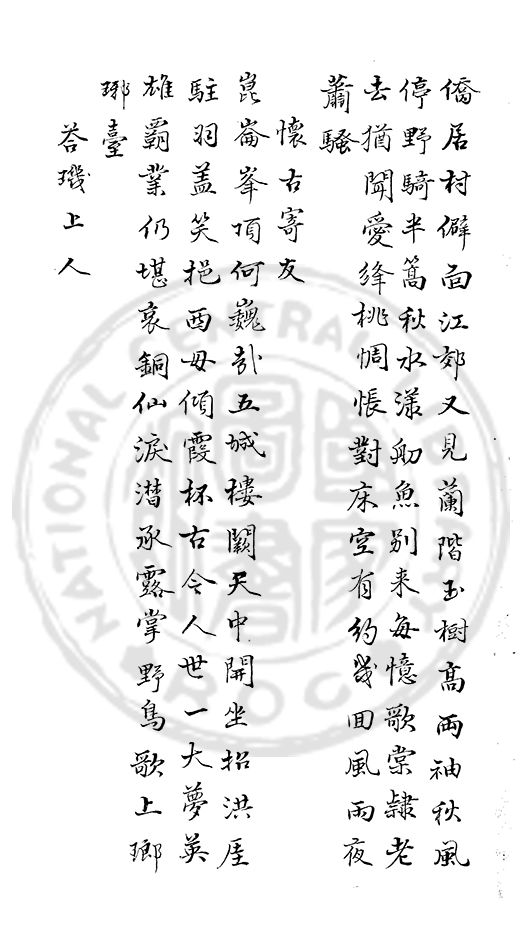 僑居村僻面江郊又見蘭階玉樹髙兩袖秋風
停野騎半篙秋水漾舠魚别来每憶歌棠隷老
去猶聞愛絳桃惆悵對床空有約㡬回風雨夜
蕭騷
懷古寄友
崑崙峯項何巍㢤五城樓闕天中開坐招洪厓
駐羽盖笑挹西母傾霞杯古今人世一大夢英
雄霸業仍堪哀銅仙淚潛承露掌野鳥歌上瑯
琊臺
答璣上人
NATIONAL CENTRAL LIBRARY
R.O.C.